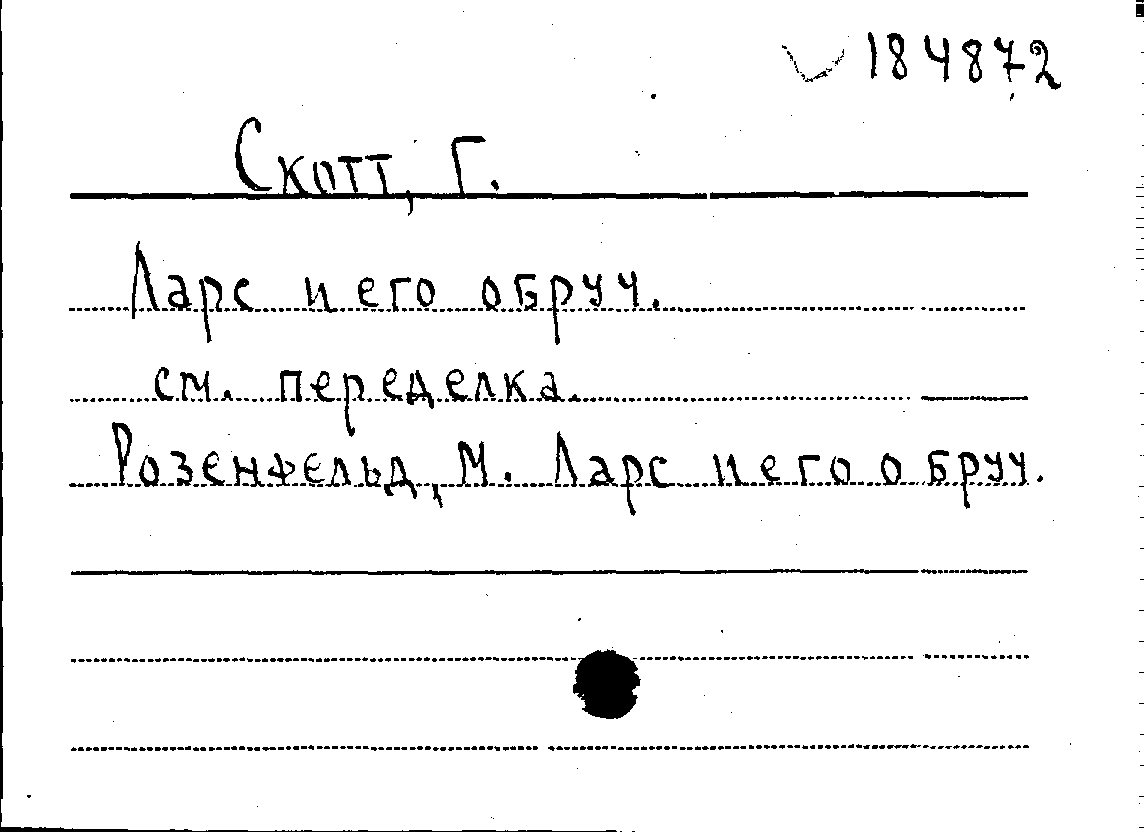 184872
Скотт, Г.
Ларс и его обруч.
см. переделка.
Розенфельд, М. Ларс и его обруч.